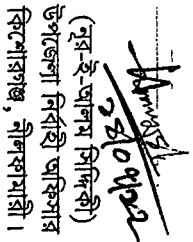 (নূর-ই-আলম সিদ্দিকী)
উপজেলা নির্বাহী অফিসার
কিশোরগঞ্জ, নীলফামারী।